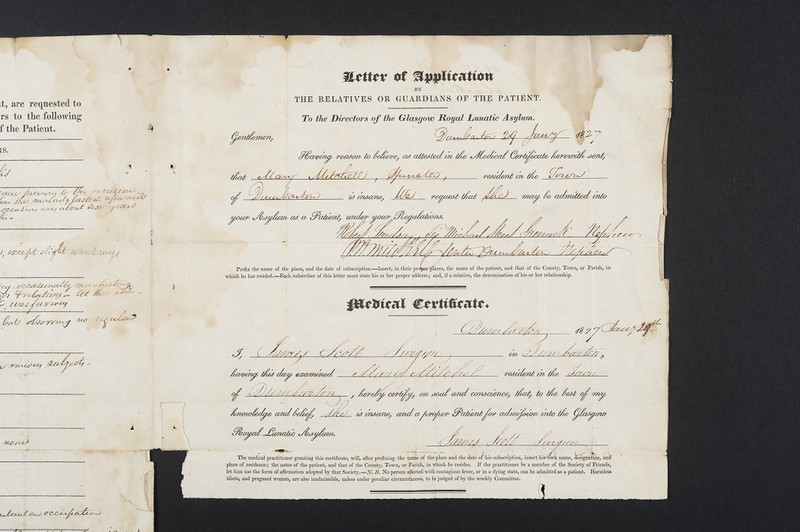 t, are requested to
rs to the following
f the Patient.
RS.
Letter of Application
BY
THE RELATIVES OR GUARDIANS OF THE PATIENT.
To the Directors of the Glasgow Royal Lunatic Asylum.
Gentlemen, Dumbarton 29 Jany 1827
Having reason to believe, as attested in the Medical Certificate herewith sent,
that Mary Mitchell, Spinster, resident in the Town
of Dumbarton is insane, We request that She may be admitted into
your Asylum as a Patient, under your Regulations.
Michael Street Greenock Nephew
Dumbarton Nephew
Prefix the name of the place, and the date of subscription.—Insert, in their proper places, the name of the patient, and that of the County, Town, or Parish, in
which he has resided.—Each subscriber of this letter must state his or her proper address; and, if a relative, the denomination of his or her relationship.
Medical Certificate.
Dumbarton 1827 Jany 29th
I, James Scott Surgeon, in Dumbarton,
having this day examined Mary Mitchell resident in the Town
of Dumbarton, hereby certify, on soul and conscience, that, to the best of my
knowledge and belief, She is insane, and a proper Patient for admission into the Glasgow
Royal Lunatic Asylum.
James Scott Surgeon
The medical practitioner granting this certificate, will, after prefixing the name of the place and the date of his subscription, insert his own name, designation, and
place of residence; the name of the patient, and that of the County, Town, or Parish, in which he resides. If the practitioner be a member of the Society of Friends,
let him use the form of affirmation adopted by that Society.—N. B. No person affected with contagious fever, or in a dying state, can be admitted as a patient. Harmless
idiots, and pregnant women, are also inadmissible, unless under peculiar circumstances, to be judged of by the weekly Committee.
, except slight wanderings
various subjects
none
occupation